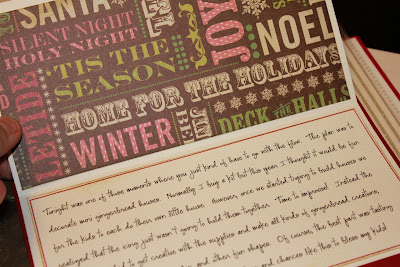 SANTA
SILENT NIGHT
HOLY NIGHT
'TIS THE
SEASON
JOY
NOEL
HOME FOR THE HOLIDAYS
WINTER
DECK THE HALLS
Tonight was one of those moments where you just kind of have to go with the flow. The plan was to
decorate mini gingerbread houses. Normally I buy a kit but this year I thought it would be fun
for the kids to each do their own little house. However, once we started trying to build houses we
realized that the icing just wasn't going to hold them together. Time to improvise! Instead the
to get creative with the supplies and make all kinds of gingerbread creations,
and other fun shapes. Of course, the best part was tasting
and chances like this to bless my kids!